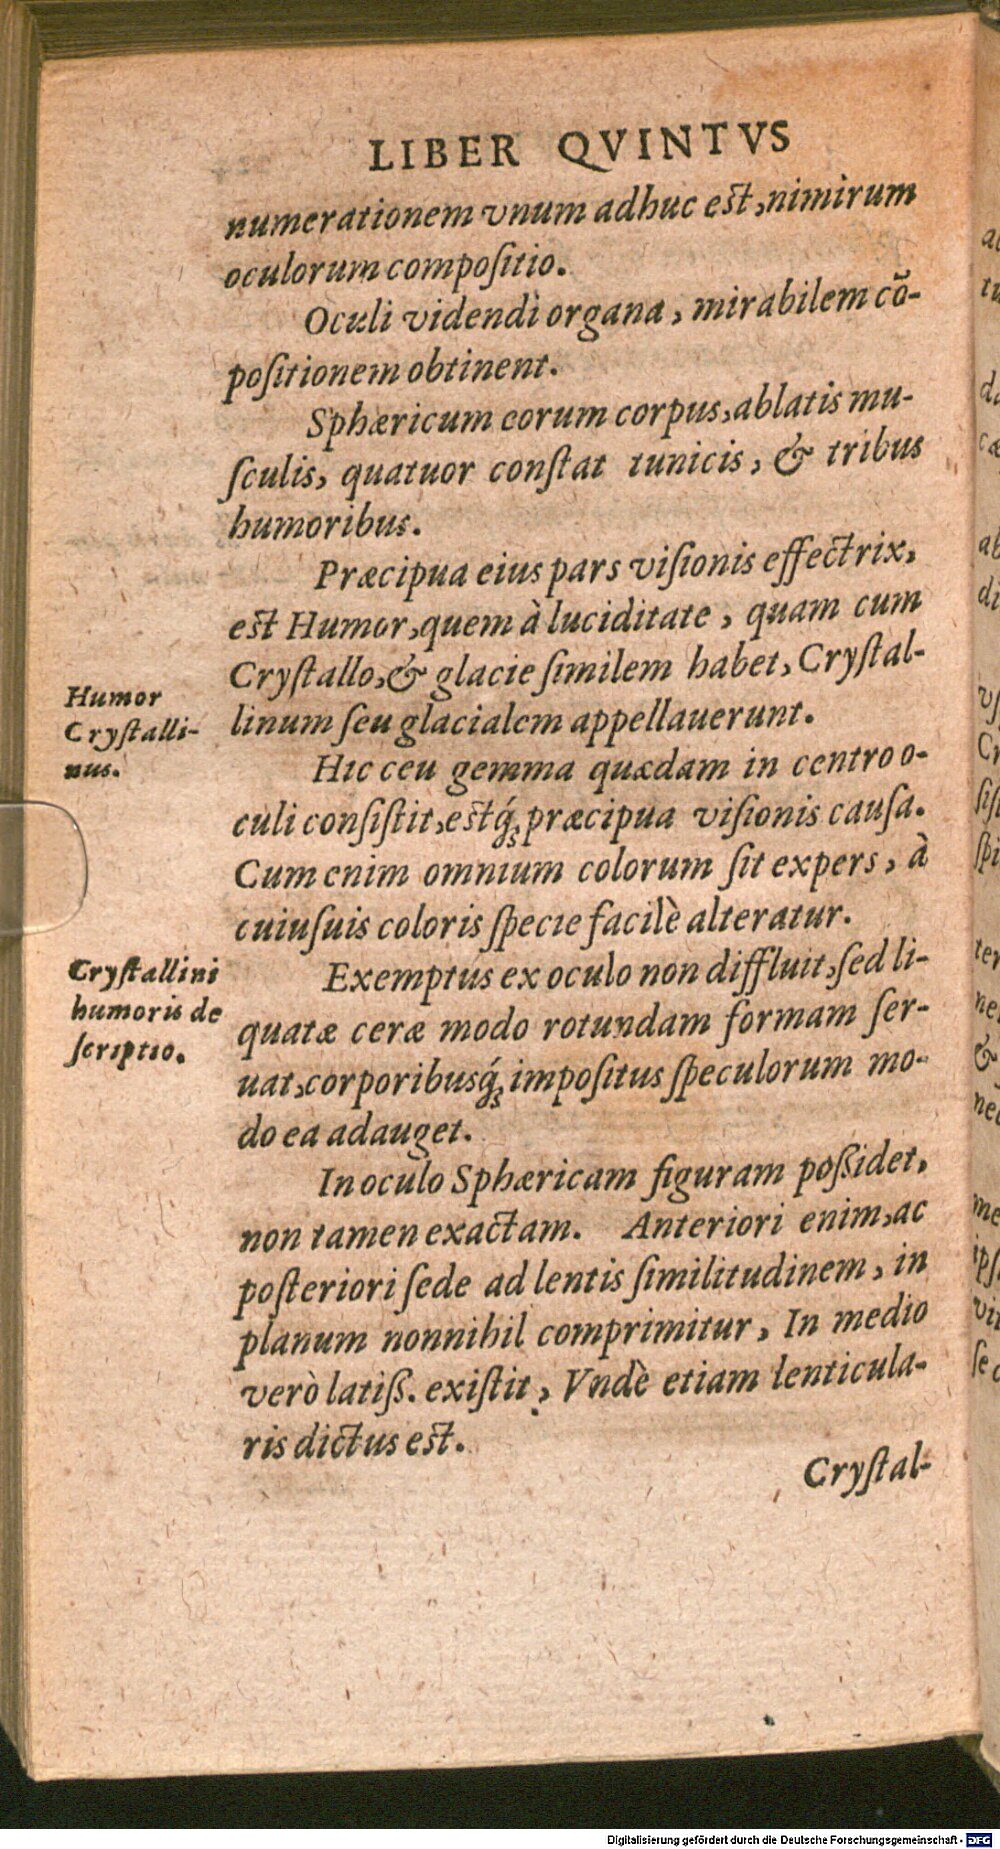 LIBER QVINTVS
numerationem vnum adhuc est, nimirum
oculorum compoſitio.
Oculi videndi organa, mirabilem cō-
poſitionem obtinent.
Sphæricum eorum corpus, ablatis mu-
ſculis, quatuor conſtat tunicis, & tribus
humoribus.
Præcipua eius pars viſionis effectrix,
est Humor, quem à luciditate, quam cum
Cryſtallo, & glacie ſimilem habet, Cryſtal-
linum ſeu glacialem appellauerunt.
Humor
Cryſtalli-
nus.
Hic ceu gemma quædam in centro o-
culi conſiſtit, estq́; præcipua viſionis cauſa.
Cum enim omnium colorum ſit expers, à
cuiuſuis coloris ſpecie facilè alteratur.
Exemptus ex oculo non diffluit, ſed li-
quatæ ceræ modo rotundam formam ſer-
uat, corporibusq́; impoſitus ſpeculorum mo-
do ea adauget.
Cryſtallini
humoris de
ſcriptio.
In oculo Sphæricam figuram poßidet,
non tamen exactam. Anteriori enim, ac
poſteriori ſede ad lentis ſimilitudinem, in
planum nonnihil comprimitur, In medio
verò latiß. exiſtit, Vndè etiam lenticula-
ris dictus est.
Cryſtal-
Digitalisierung gefördert durch die Deutsche Forschungsgemeinschaft - DFG